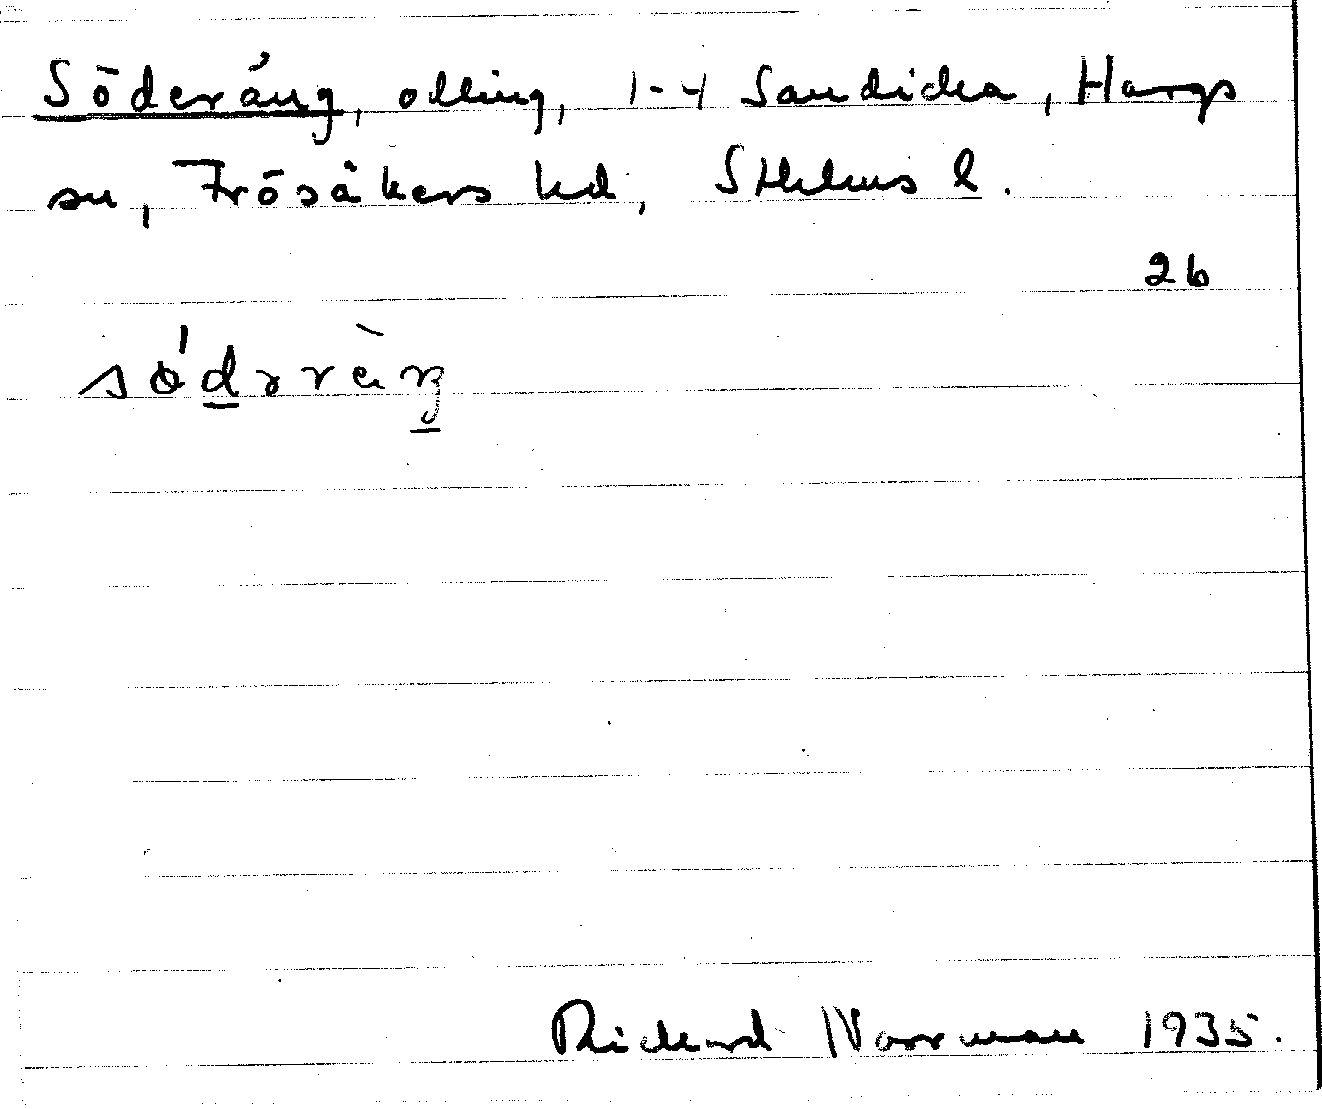 Söderäng, olling, 1-4 Sandika, Hargs
sn, Frösåkers hd, Sthlms l.
26
Rickard Norrman 1935.